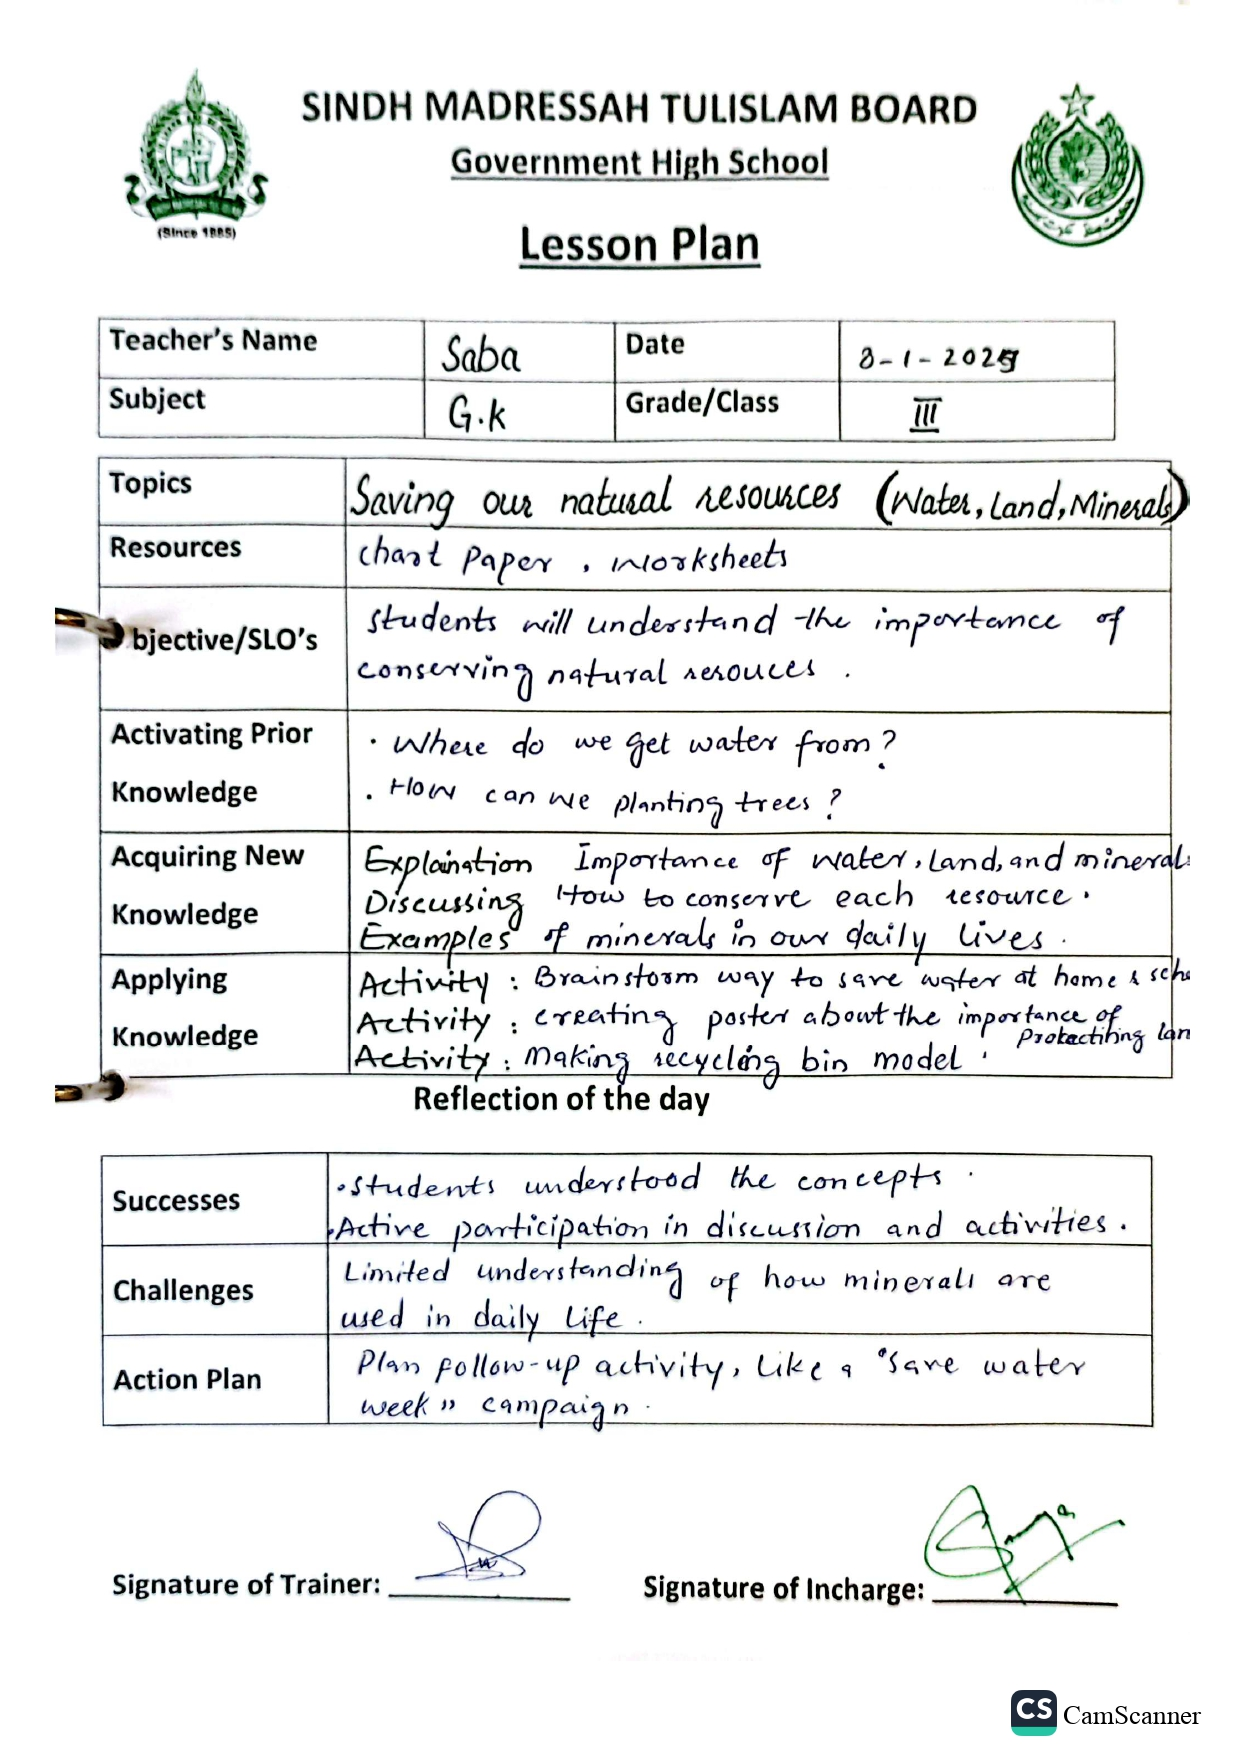 SINDH MADRESSAH TULISLAM BOARD
Government High School
(Since 1885)
Lesson Plan
Teacher's Name Saba Date 8-1-2025
Subject G.K Grade/Class III
Topics Saving our natural resources (Water, Land, Minerals)
Resources Chart Paper, Worksheets
bjective/SLO's Students will understand the importance of
conserving natural resouces.
Activating Prior · Where do we get water from?
Knowledge · How can we planting trees?
Acquiring New Explaination Importance of water, land, and mineral
Knowledge Discussing How to conserve each resource.
Examples of minerals in our daily lives.
Applying Activity: Brainstorm way to save water at home & sch
Knowledge Activity: creating poster about the importance of
Protectihing lan
Activity: Making recycling bin model.
Reflection of the day
Successes · Students understood the concepts.
· Active participation in discussion and activities.
Challenges Limited understanding of how minerals are
used in daily life.
Action Plan Plan follow-up activity, like a "save water
week" campaign.
Signature of Trainer:
Signature of Incharge:
CS CamScanner